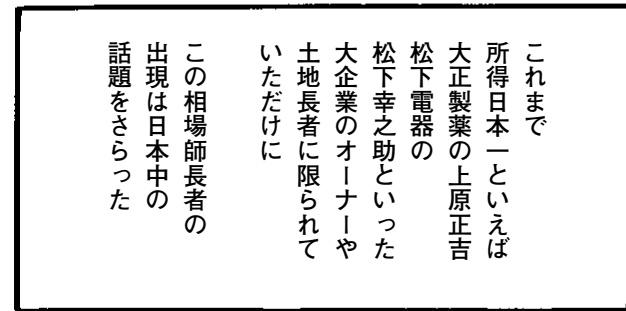 これまで
所得日本一といえば
大正製薬の上原正吉
松下電器の
松下幸之助といった
大企業のオーナーや
土地長者に限られて
いただけに
この相場師長者の
出現は日本中の
話題をさらった